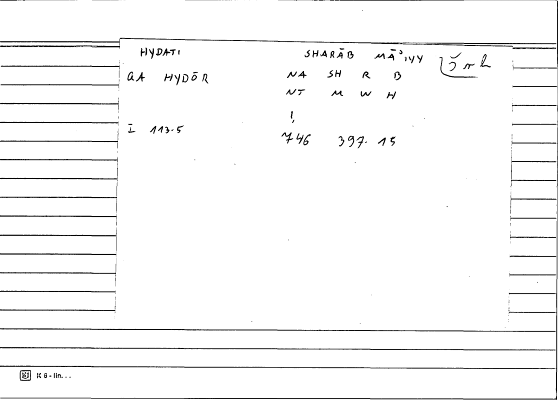 HYDATI SHARĀB MĀʾIYY
QA HYDŌR NA SH R B
NT M W H
I 113.5 1, 746 397. 15
K 6 - lin. . .